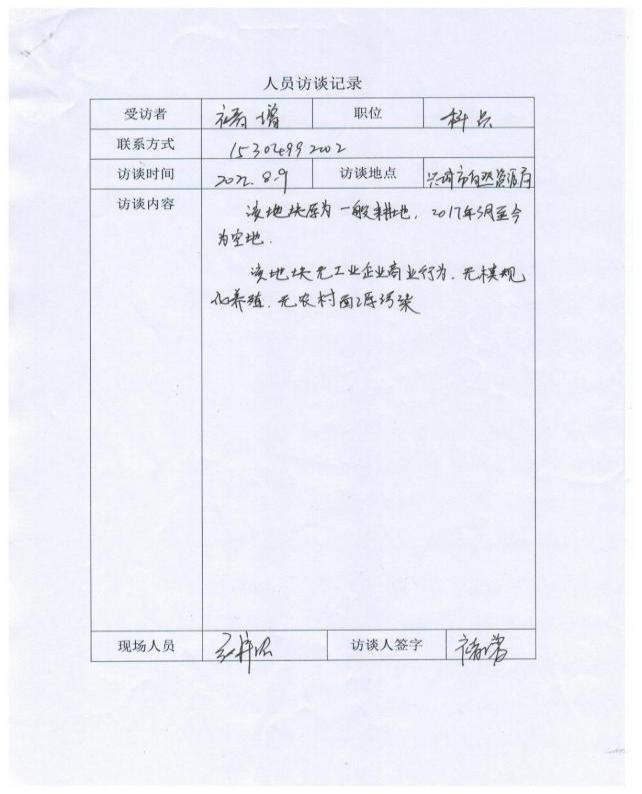 人员访谈记录
受访者 职位 科员
联系方式 15304992002
访谈时间 2022.8.9 访谈地点 兴城市自然资源局
访谈内容 该地块原为一般耕地，2017年5月至今
为空地.
该地块无工业企业商业行为.无模规
化养殖.无农村面源污染
现场人员 访谈人签字